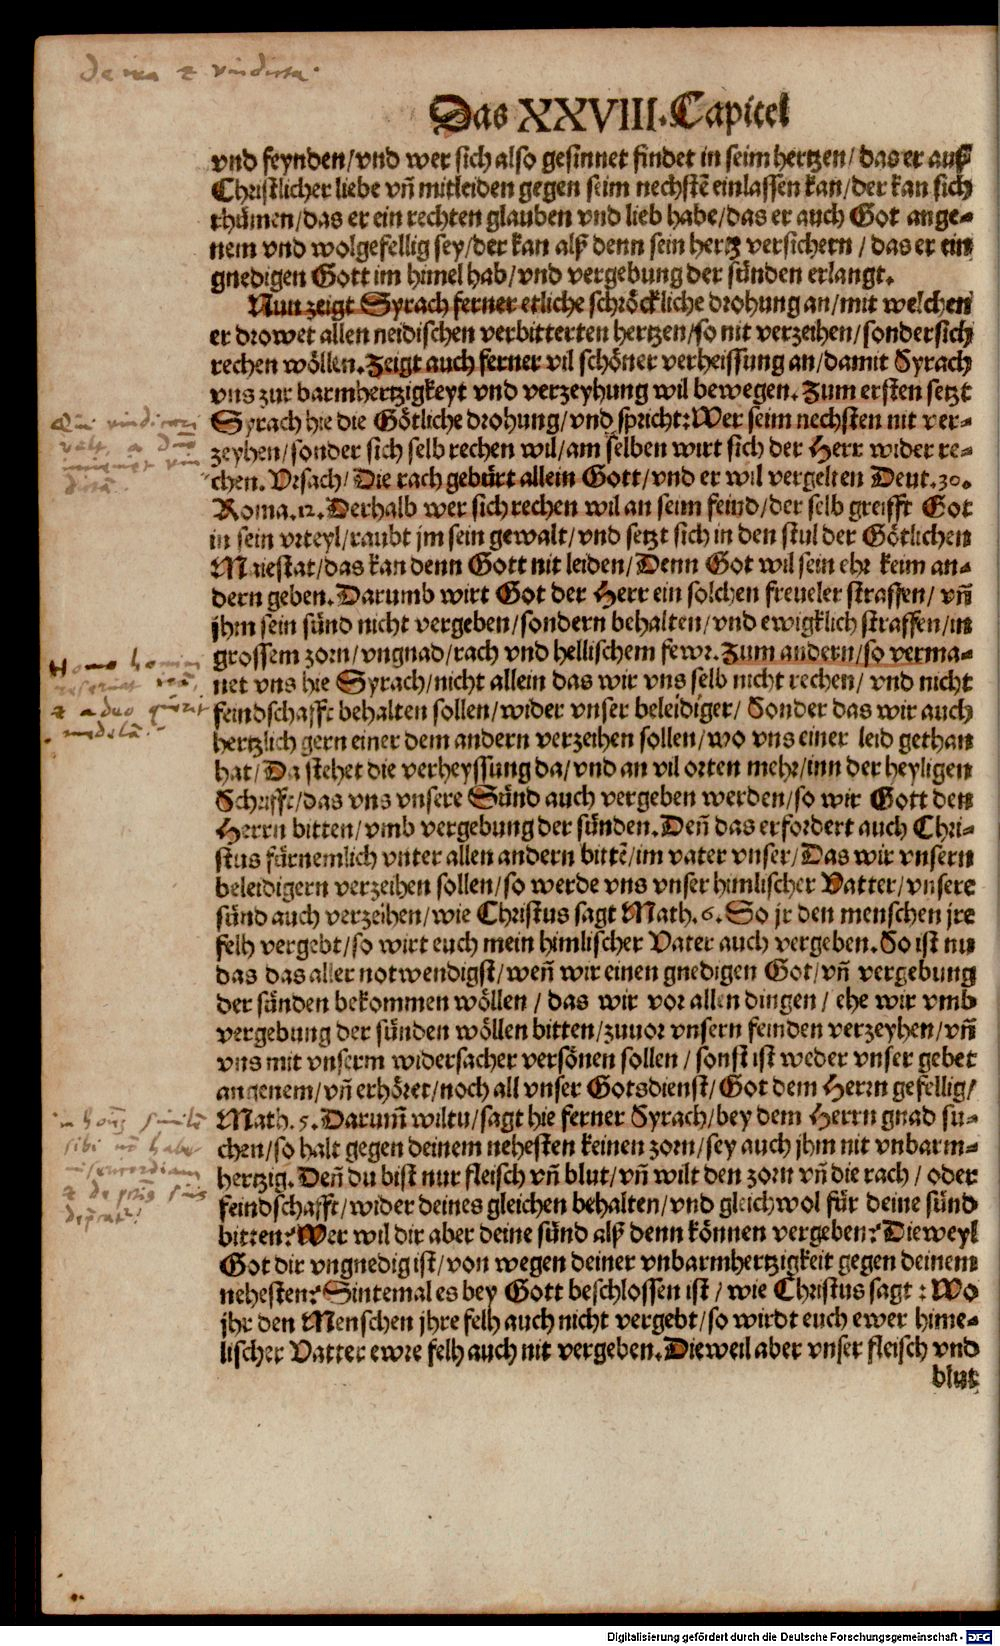 De ira et vindicta.
Das XXVIII. Capitel
vnd feynden/vnd wer sich also gesinnet findet in seim hertzen/das er auß
Christlicher liebe vñ mitleiden gegen seim nechstẽ einlassen kan/der kan sich
rhümen/das er ein rechten glauben vnd lieb habe/das er auch Got ange-
nem vnd wolgefellig sey/der kan alß denn sein hertz versichern/das er ein
gnedigen Gott im himel hab/vnd vergebung der sünden erlangt.
Nun zeigt Syrach ferner etliche schröckliche drohung an/mit welchen
er drowet allen neidischen verbitterten hertzen/so nit verzeihen/sondersich
rechen wöllen. Zeigt auch ferner vil schöner verheissung an/damit Syrach
vns zur barmhertzigkeyt vnd verzeyhung wil bewegen. Zum ersten setzt
Syrach hie die Götliche drohung/vnd spricht: Wer seim nechsten nit ver-
zeyhen/sonder sich selb rechen wil/am selben wirt sich der Herr wider re-
chen. Vrsach/Die rach gebürt allein Gott/vnd er wil vergelten Deut. 30.
Roma. 12. Derhalb wer sich rechen wil an seim feind/der selb greifft Got
in sein vrteyl/raubt jm sein gewalt/vnd setzt sich in den stul der Götlichen
Maiestat/das kan denn Gott nit leiden/Denn Got wil sein ehr keim an-
dern geben. Darumb wirt Got der Herr ein solchen freueler straffen/vñ
jhm sein sünd nicht vergeben/sondern behalten/vnd ewigklich straffen/in
grossem zorn/vngnad/rach vnd hellischem fewr. Zum andern/so verma-
net vns hie Syrach/nicht allein das wir vns selb nicht rechen/vnd nicht
feindschafft behalten sollen/wider vnser beleidiger/Sonder das wir auch
hertzlich gern einer dem andern verzeihen sollen/wo vns einer leid gethan
hat/Da stehet die verheyssung da/vnd an vil orten mehr/inn der heyligen
Schrifft/das vns vnsere Sünd auch vergeben werden/so wir Gott den
Herrn bitten/vmb vergebung der sünden. Deñ das erfordert auch Chri-
stus fürnemlich vnter allen andern bittẽ/im vater vnser/Das wir vnsern
beleidigern verzeihen sollen/so werde vns vnser himlischer Vatter/vnsere
sünd auch verzeihen/wie Christus sagt Math. 6. So jr den menschen jre
felh vergebt/so wirt euch mein himlischer Vater auch vergeben. So ist nu
das das aller notwendigst/weñ wir einen gnedigen Got/vñ vergebung
der sünden bekommen wöllen/das wir vor allen dingen/ehe wir vmb
vergebung der sünden wöllen bitten/zuuor vnsern feinden verzeyhen/vñ
vns mit vnserm widersacher versönen sollen/sonst ist weder vnser gebet
angenem/vñ erhöret/noch all vnser Gotsdienst/Got dem Herrn gefellig/
Math. 5. Darum̃ wiltu/sagt hie ferner Syrach/bey dem Herrn gnad su-
chen/so halt gegen deinem nehesten keinen zorn/sey auch jhm nit vnbarm-
hertzig. Deñ du bist nur fleisch vñ blut/vñ wilt den zorn vñ die rach/oder
feindschafft/wider deines gleichen behalten/vnd gleich wol für deine sünd
bitten? Wer wil dir aber deine sünd alß denn können vergeben? Dieweyl
Got dir vngnedig ist/von wegen deiner vnbarmhertzigkeit gegen deinem
nehesten? Sintemal es bey Gott beschlossen ist/wie Christus sagt: Wo
jhr den Menschen jhre felh auch nicht vergebt/so wirdt euch ewer hime-
lischer Vatter ewre felh auch nit vergeben. Dieweil aber vnser fleisch vnd
blut
Qui vindicari
vult, a Dño
Homo homini
reservat irã,
et a deo querit
medelã.
in hoiẽ similẽ
sibi nõ habet
misericordiam
Digitalisierung gefördert durch die Deutsche Forschungsgemeinschaft - DFG